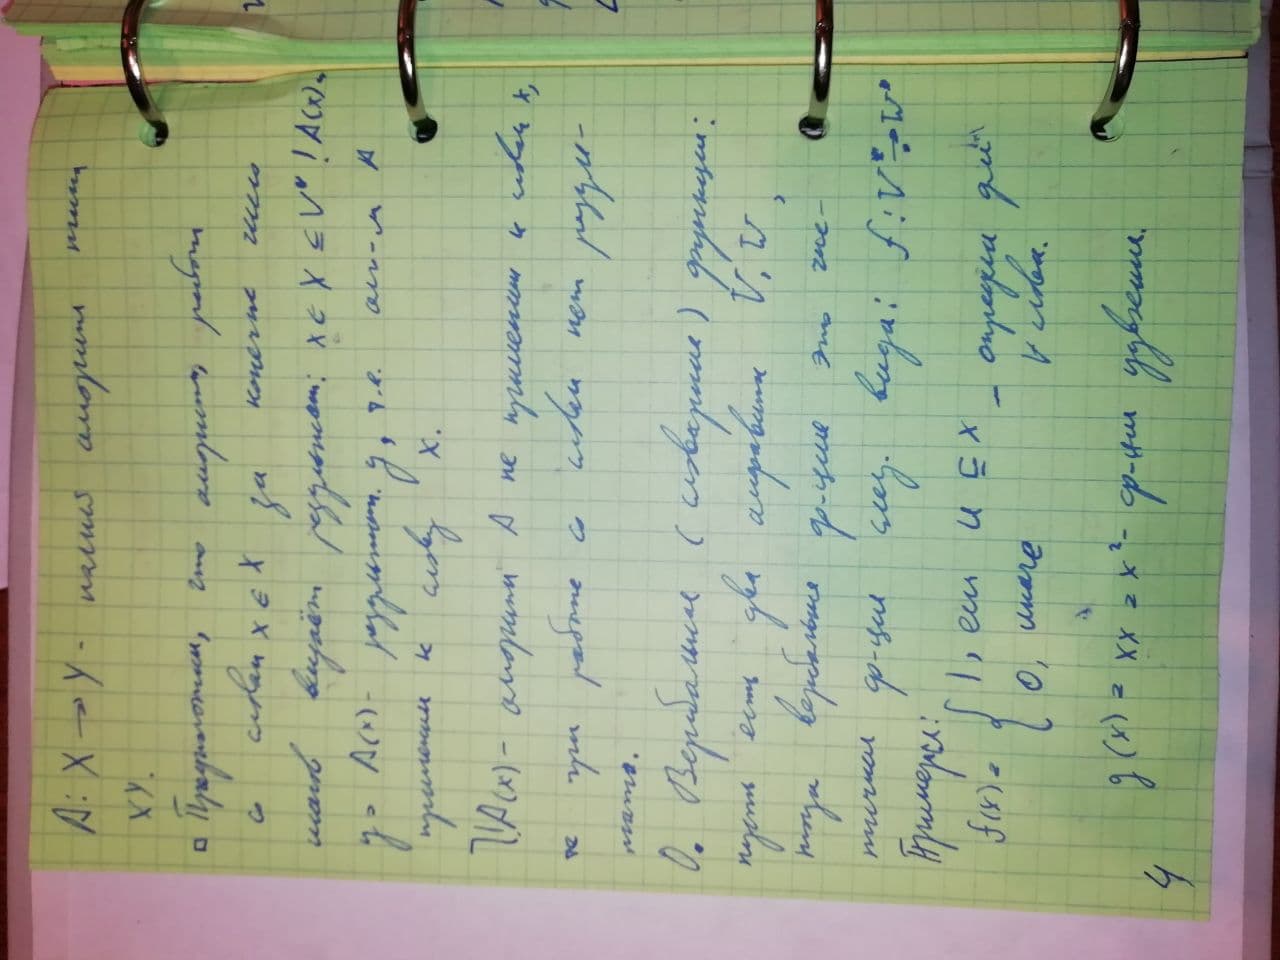 A: X → Y - алгоритм типа
XY.
□ Предположим, что алгоритм, работая
со словом x ∈ X за конечное число
шагов выдаёт результат: x ∈ X ⊆ V* !A(x),
y = A(x) - результат y, т.е. алг-м A
применим к слову x.
⅂!A(x) - алгоритм A не применим к словам x,
при работе со словом нет резуль-
тата.
О. Вербальные (словарные) функции:
пусть есть два алфавита V, W,
тогда вербальная ф-ция это час-
тичная ф-ция след. вида: f: V* →• W*
Примеры:
f(x) = { 1, если u ⊑ x - опред для
0, иначе ∀ слова.
g(x) = xx = x² - ф-ция удвоения.
4